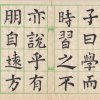 子曰學而
時習之不
亦說乎有
朋自遠方